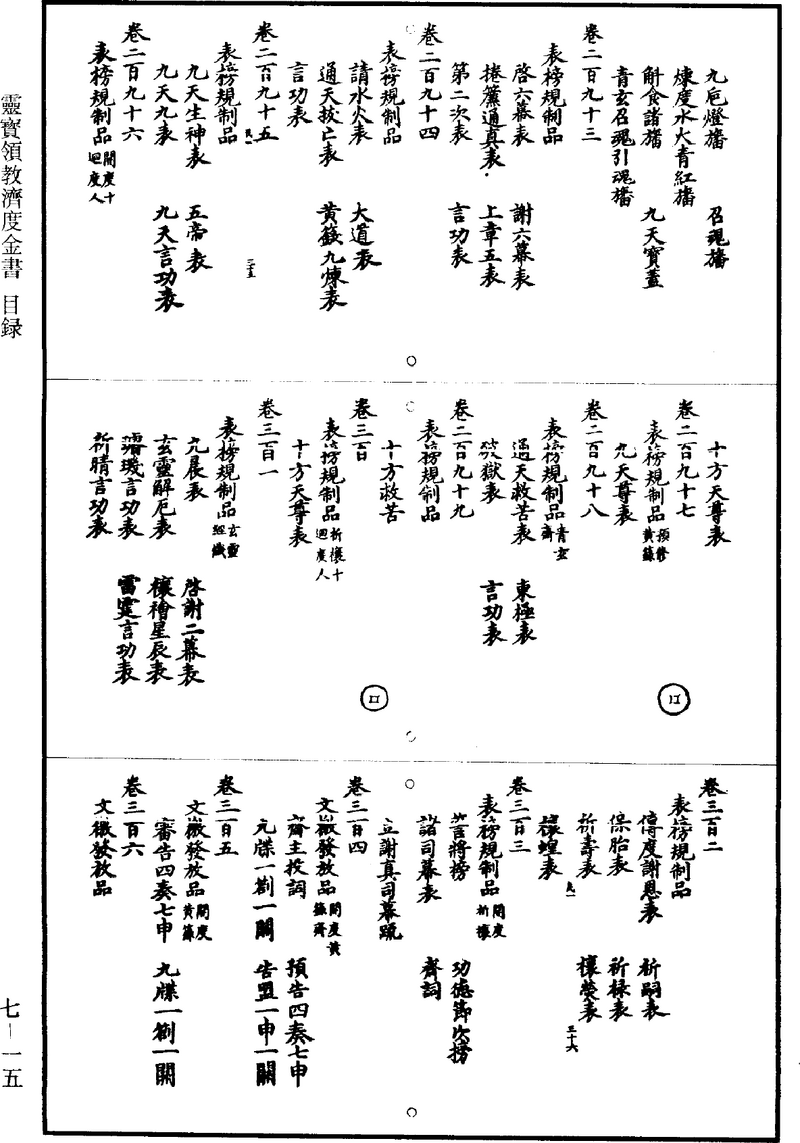 九巵燈旛　召魂旛
煉度水火青紅旛
斛食諸旛　九天寶蓋
青玄召魂引魂旛
卷二百九十三
表榜規制品
啓六幕表　謝六幕表
捲簾通真表　上章五表
第二次表　言功表
卷二百九十四
表榜規制品
請水火表　大道表
通天拔亡表　黃籙九煉表
言功表
卷二百九十五
表榜規制品
九天生神表　五帝表
九天九表　九天言功表
卷二百九十六
表榜規制品 開度十迴度人
十方天尊表
卷二百九十七
表榜規制品 預修黃籙
九天尊表
卷二百九十八
表榜規制品 青玄齋
通天救苦表　東極表
破獄表　言功表
卷二百九十九
表榜規制品
十方救苦
卷三百
表榜規制品 祈禳十迴度人
十方天尊表
卷三百一
表榜規制品 玄靈經懺
九晨表　啓謝二幕表
玄靈解厄表　禳禬星辰表
璿璣言功表　雷霆言功表
祈晴言功表
卷三百二
表榜規制品
傳度謝恩表　祈嗣表
保胎表　祈祿表
祈壽表　禳熒表
禳蝗表
卷三百三
表榜規制品 開度祈禳
誓將榜　功德節次榜
諸司幕表　齋詞
立謝真司幕疏
卷三百四
文檄發放品 開度黃籙齋
齋主投詞　預告四奏七申
九牒一劄一關　告盟一申一關
卷三百五
文檄發放品 開度黃籙
審告四奏七申　九牒一劄一關
卷三百六
文檄發放品
靈寶領教濟度金書　目録
七－一五